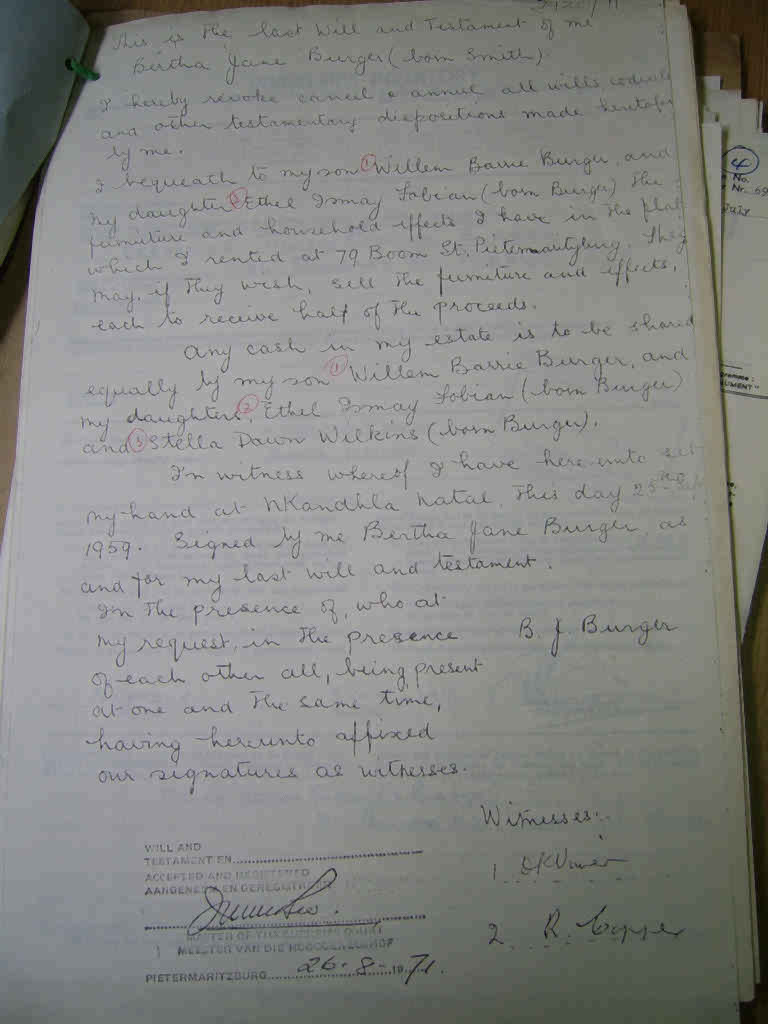 This is the last Will and Testament of me
Bertha Jane Burger (born Smith).
I hereby revoke cancel & annul all wills, codicils
and other testamentary dispositions made heretofor
by me.
I bequeath to my son ① Willem Barrie Burger, and
my daughter ② Ethel Ismay Fabian (born Burger) the
furniture and household effects I have in the flat
which I rented at 79 Boom St, Pietermaritzburg. They
may, if they wish, sell the furniture and effects,
each to receive half of the proceeds.
Any cash in my estate is to be shared
equally by my son ① Willem Barrie Burger, and
my daughters, ② Ethel Ismay Fabian (born Burger)
and ③ Stella Dawn Wilkins (born Burger).
In witness whereof I have here-unto set
my hand at Nkandhla Natal, This day 25
1959. Signed by me Bertha Jane Burger as
and for my last will and testament.
In the presence of, who at
my request, in the presence
of each other all, being present
at one and the same time,
having hereunto affixed
our signatures as witnesses.
B. J. Burger
Witnesses:
1
2 R.
WILL AND
TESTAMENT EN
ACCEPTED AND REGISTERED
AANGENEEM EN GEREGISTREER
MASTER OF THE SUPREME COURT
MEESTER VAN DIE HOOGGEREGSHOF
PIETERMARITZBURG 26-8-1971.
4
No.
Nr. 69
July
UMENT"